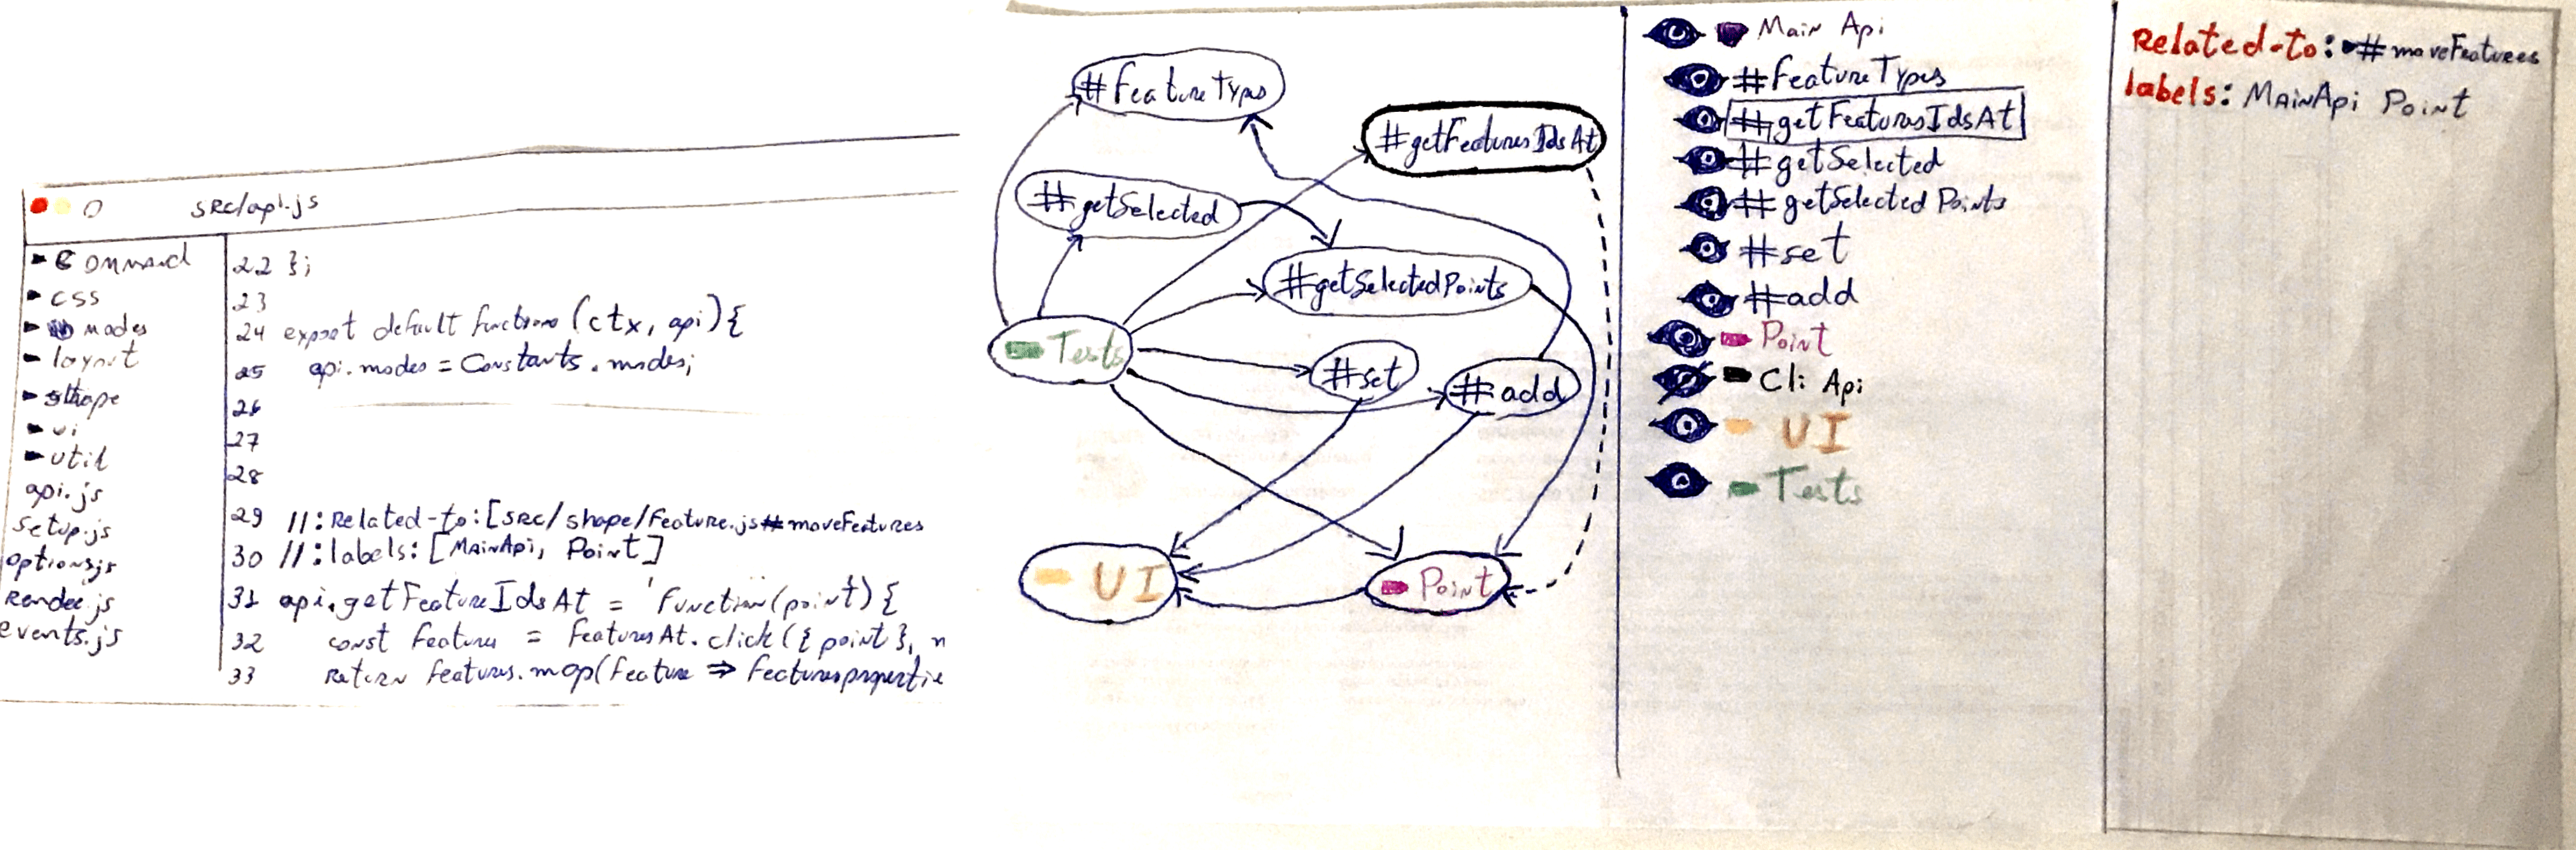 src/api.js
Command
css
modes
layout
shape
ui
util
api.js
setup.js
options.js
Render.js
events.js
22 };
23
24 export default function (ctx, api) {
25 api.modes = Constants.modes;
26
27
28
29 //:Related-to:[src/shape/Feature.js#moveFeatures
30 //:labels:[MainApi, Point]
31 api.getFeatureIdsAt = function(point) {
32 const features = featuresAt.click({point}, n
33 return features.map(feature => feature.propertie
#featureTypes
#getFeaturesIdsAt
#getSelected
#getSelectedPoints
Tests
#set
#add
UI
Point
Main Api
#featureTypes
#getFeaturesIdsAt
#getSelected
#getSelectedPoints
#set
#add
Point
Cli Api
UI
Tests
Related-to: #moveFeatures
labels: MainApi Point